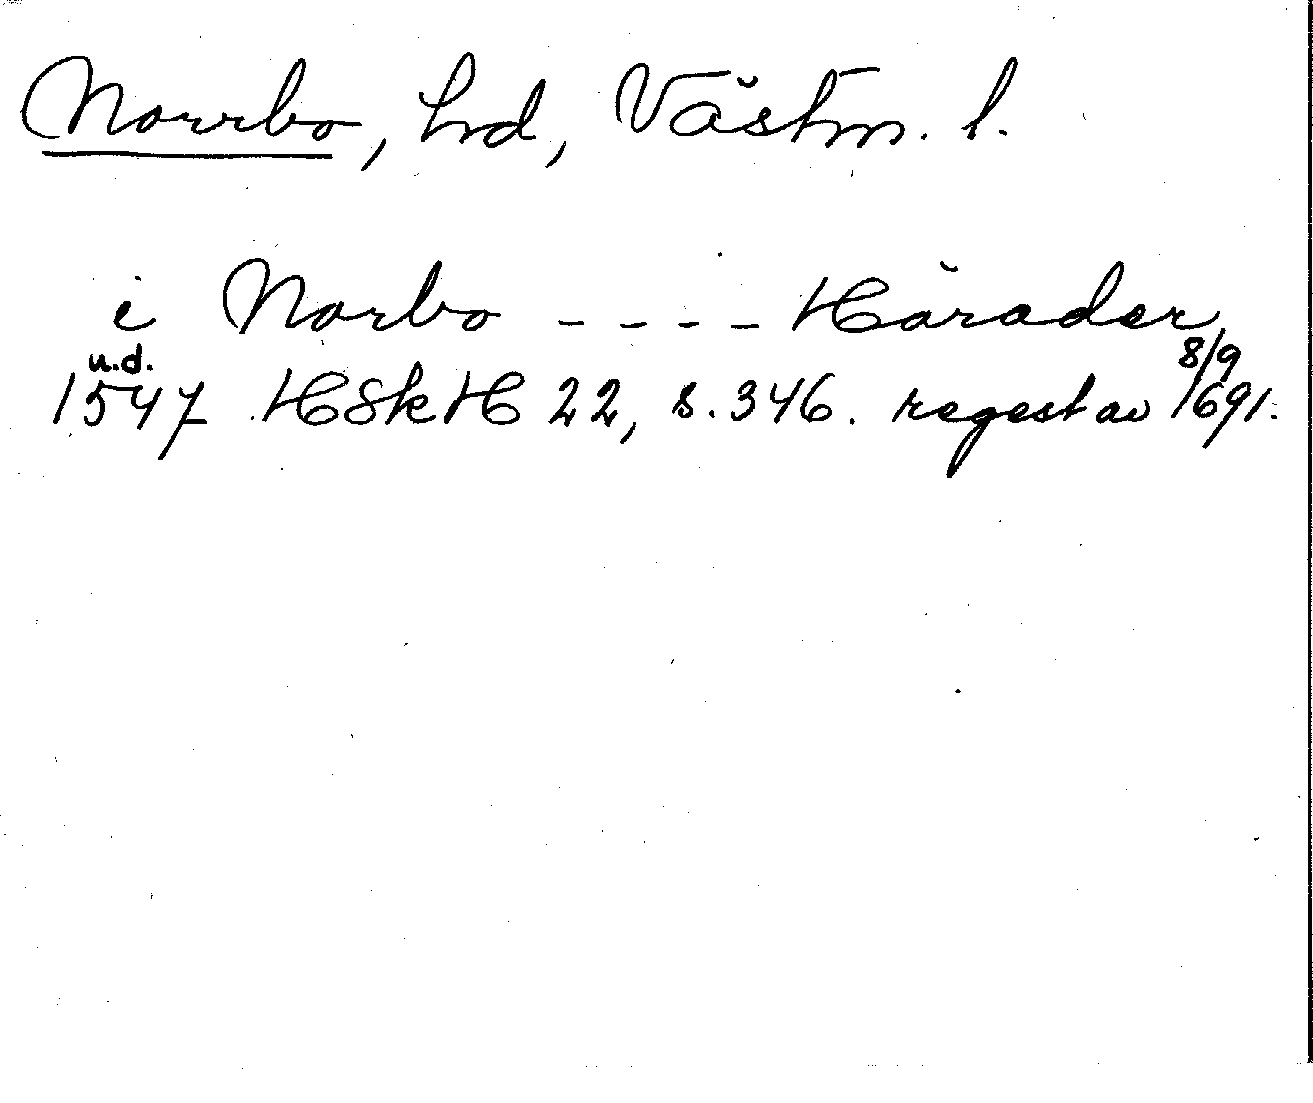 Norrbo, hd, Västm. l.
i Norbo - - - - Härader
u.d. 8/9
1547 HSkH 22, s. 346. regest av 1691.